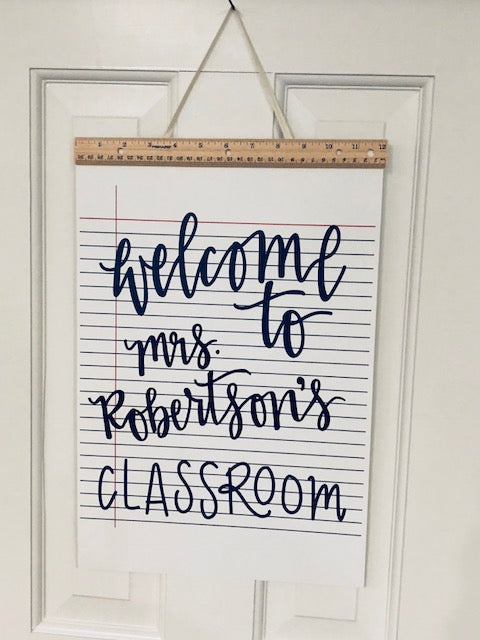 1 2 3 4 5 6 7 8 9 10 11 12
welcome
to
mrs.
Robertson's
CLASSROOM